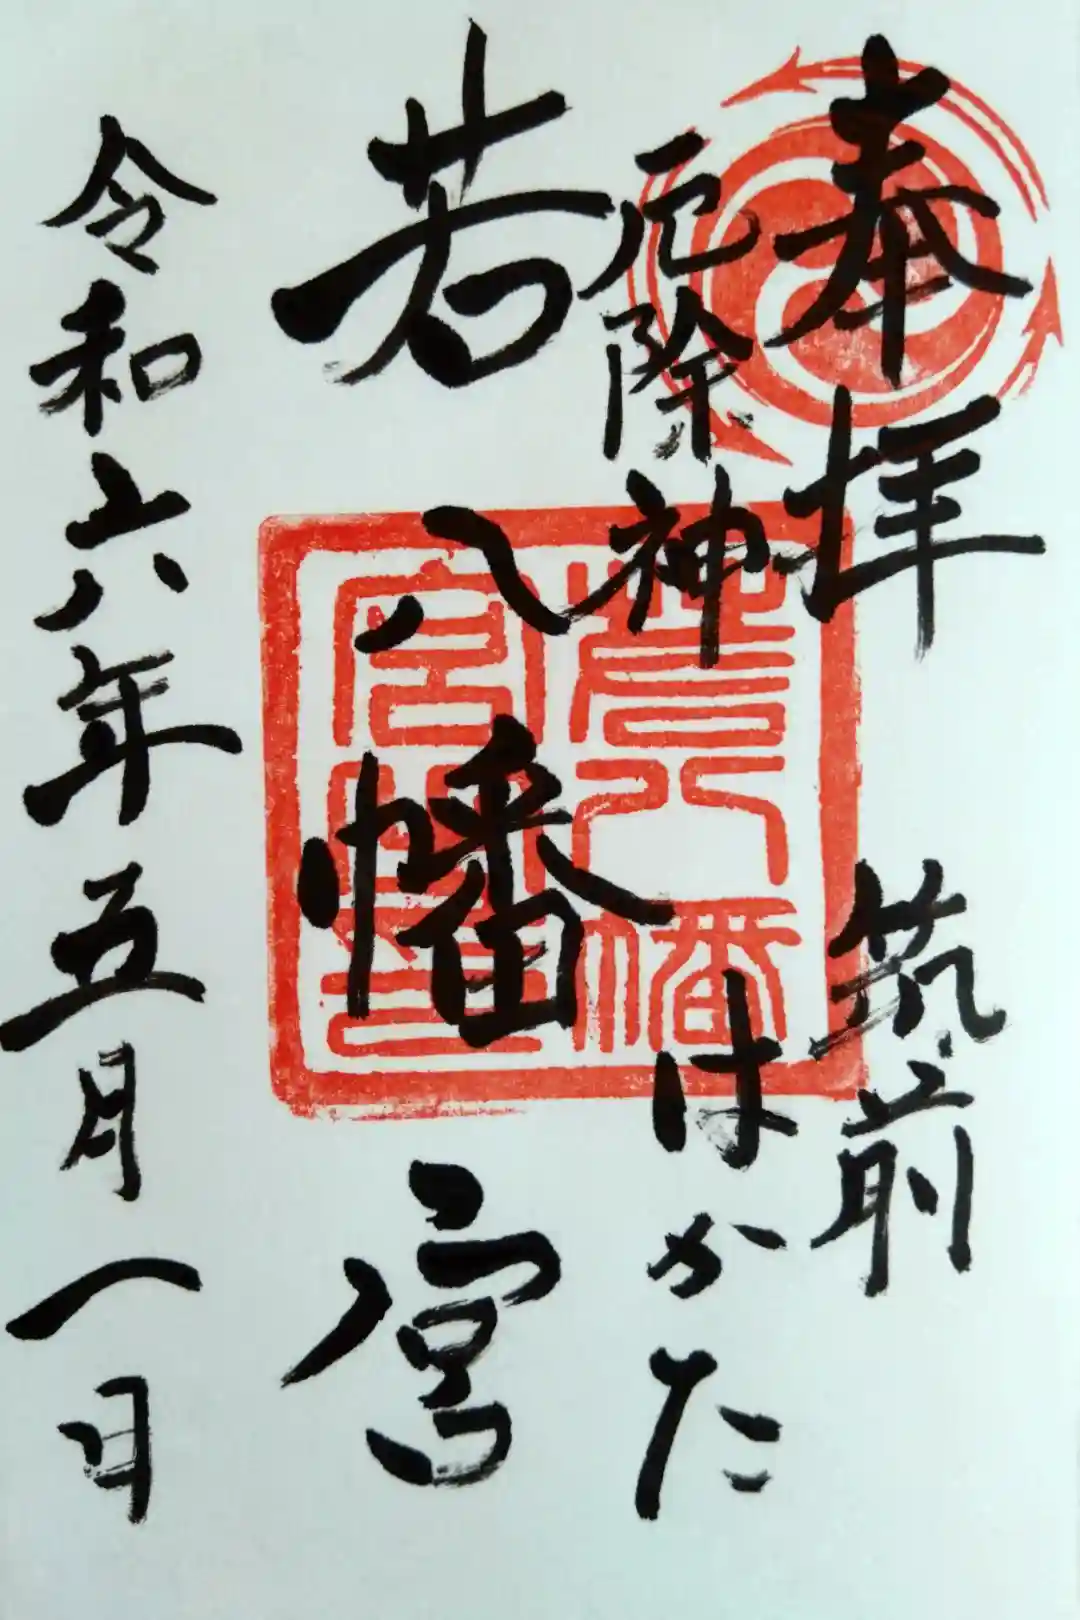 奉拝
筑前
厄除神
はかた
若八幡宮
令和六年五月一日
若八幡
宮印